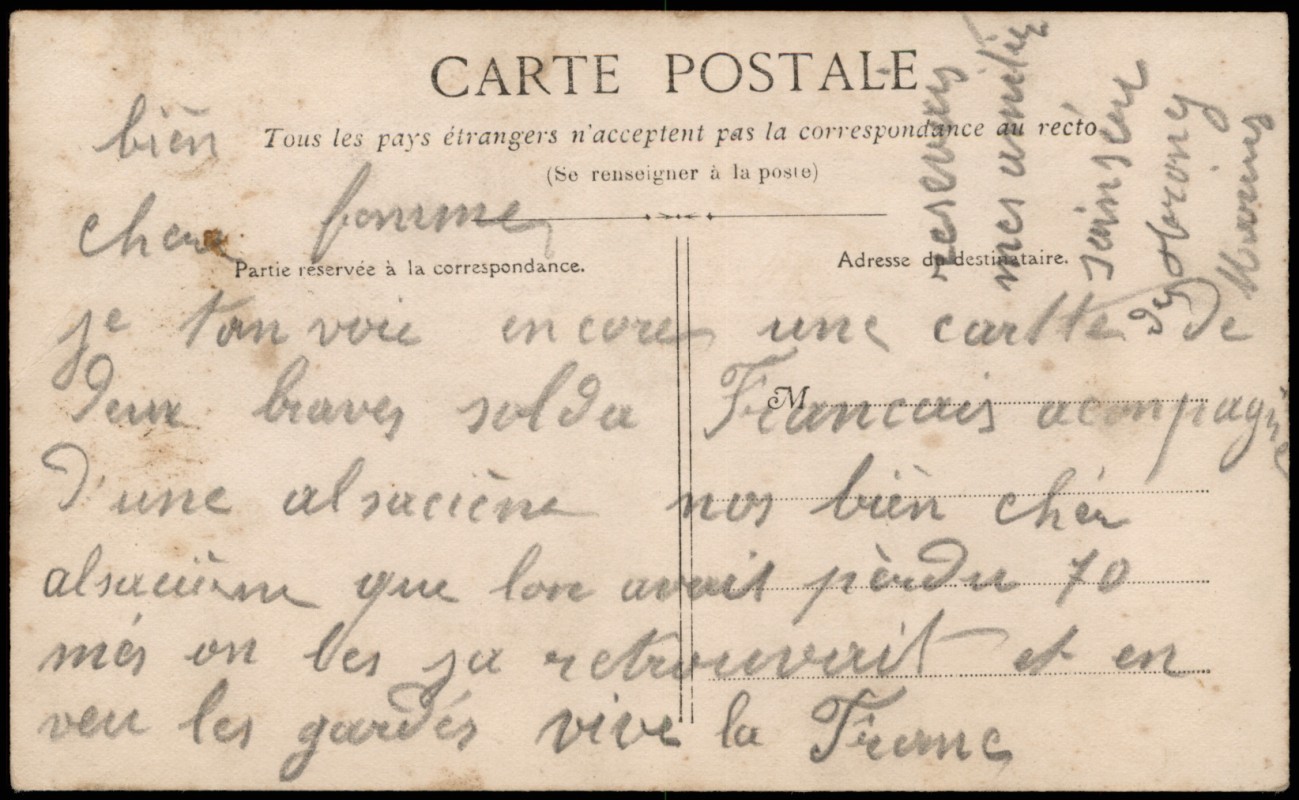 CARTE POSTALE
Tous les pays étrangers n'acceptent pas la correspondance au recto
(Se renseigner à la poste)
Partie réservée à la correspondance.
Adresse du destinataire.
M
bièn
chere fomme
je tanvoie encore une cartte de
deux braves solda Francais aconpagne
d'une alsaciène nos bièn chèr
alsacièrne que lon avait pèrdu 70
més on les ja retrouvait et en
veu les gardés vive la Franc
resevais
mes amitiér
sainseur
de
Marius